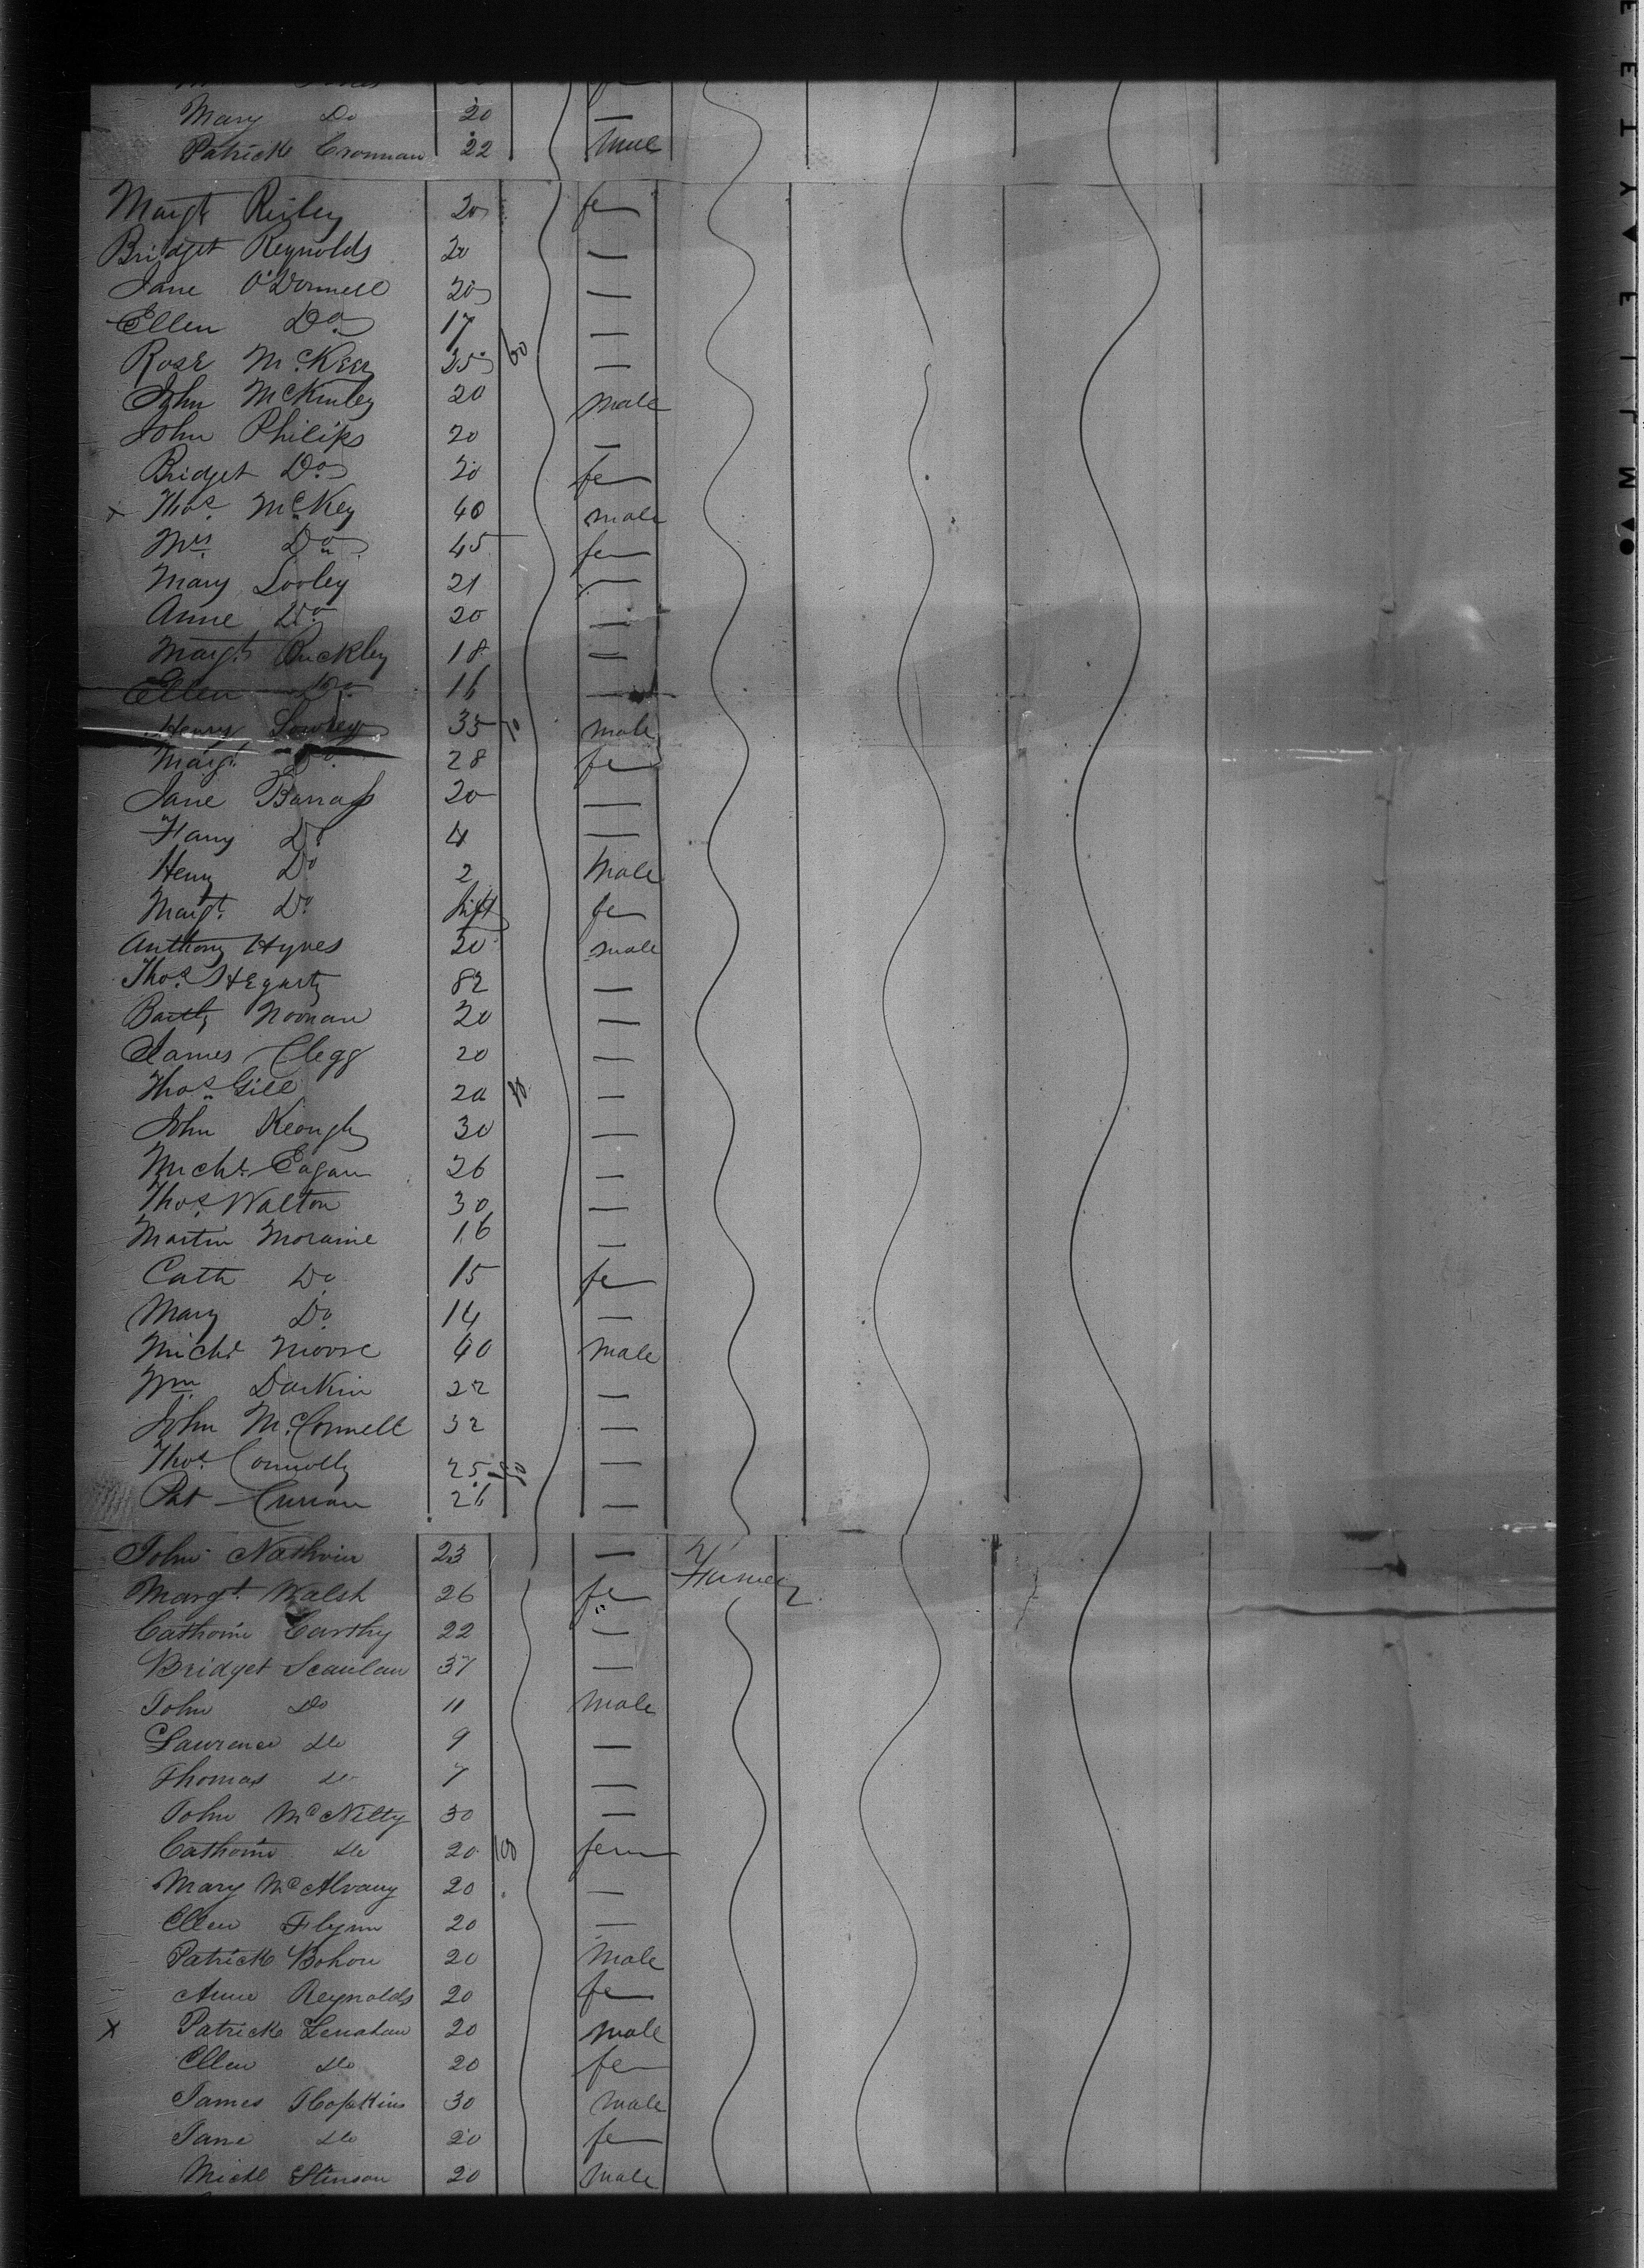 Mary Do 20 —
Patrick Cronnan 22 male
Margt Reiley 20 fe
Bridget Reynolds 20 —
Jane O'Donnell 20 —
Ellen Do 17 —
Rose McKee 25 60 —
John McKinley 20 male
John Philips 20 —
Bridget Do 20 fe
x Thos McKey 40 male
Mrs Do 45 fe
Mary Looley 21 —
Anne Do 20 —
Margt Buckley 18 —
Ellen Do 16 —
Henry Lowrey 35 70 male
Margt Do 28 fe
Jane Barrass 20 —
Fany Do 4 —
Henry Do 2 Male
Margt Do inft fe
Anthony Hynes 20 male
Thos Hegarty 82 —
Bartly Noonan 20 —
James Clegg 20 —
Thos Gill 20 —
John Keough 30 —
Michl Eagan 26 —
Thos Walton 30 —
Martin Moraine 16 —
Cath Do 15 fe
Mary Do 14 —
Michl Moore 40 Male
Wm Darkin 22 —
John McConnell 32 —
Thos Connolly 25 —
Pat Curran 26 —
John 23 —
Margt Walsh 26 fe
Cathorine Carthy 22 —
Bridget Scanlan 37 —
John Do 11 Male
Laurence Do 9 —
Thomas Do 7 —
John McNilty 30 —
Cathorine Do 20 100 fem
Mary McAlvany 20 —
Ellen Flynn 20 —
Patrick Bohon 20 Male
Anne Reynolds 20 fe
x Patrick Lenahan 20 Male
Ellen Do 20 fe
James Hopkins 30 Male
Jane Do 20 fe
Michl Stinson 20 Male